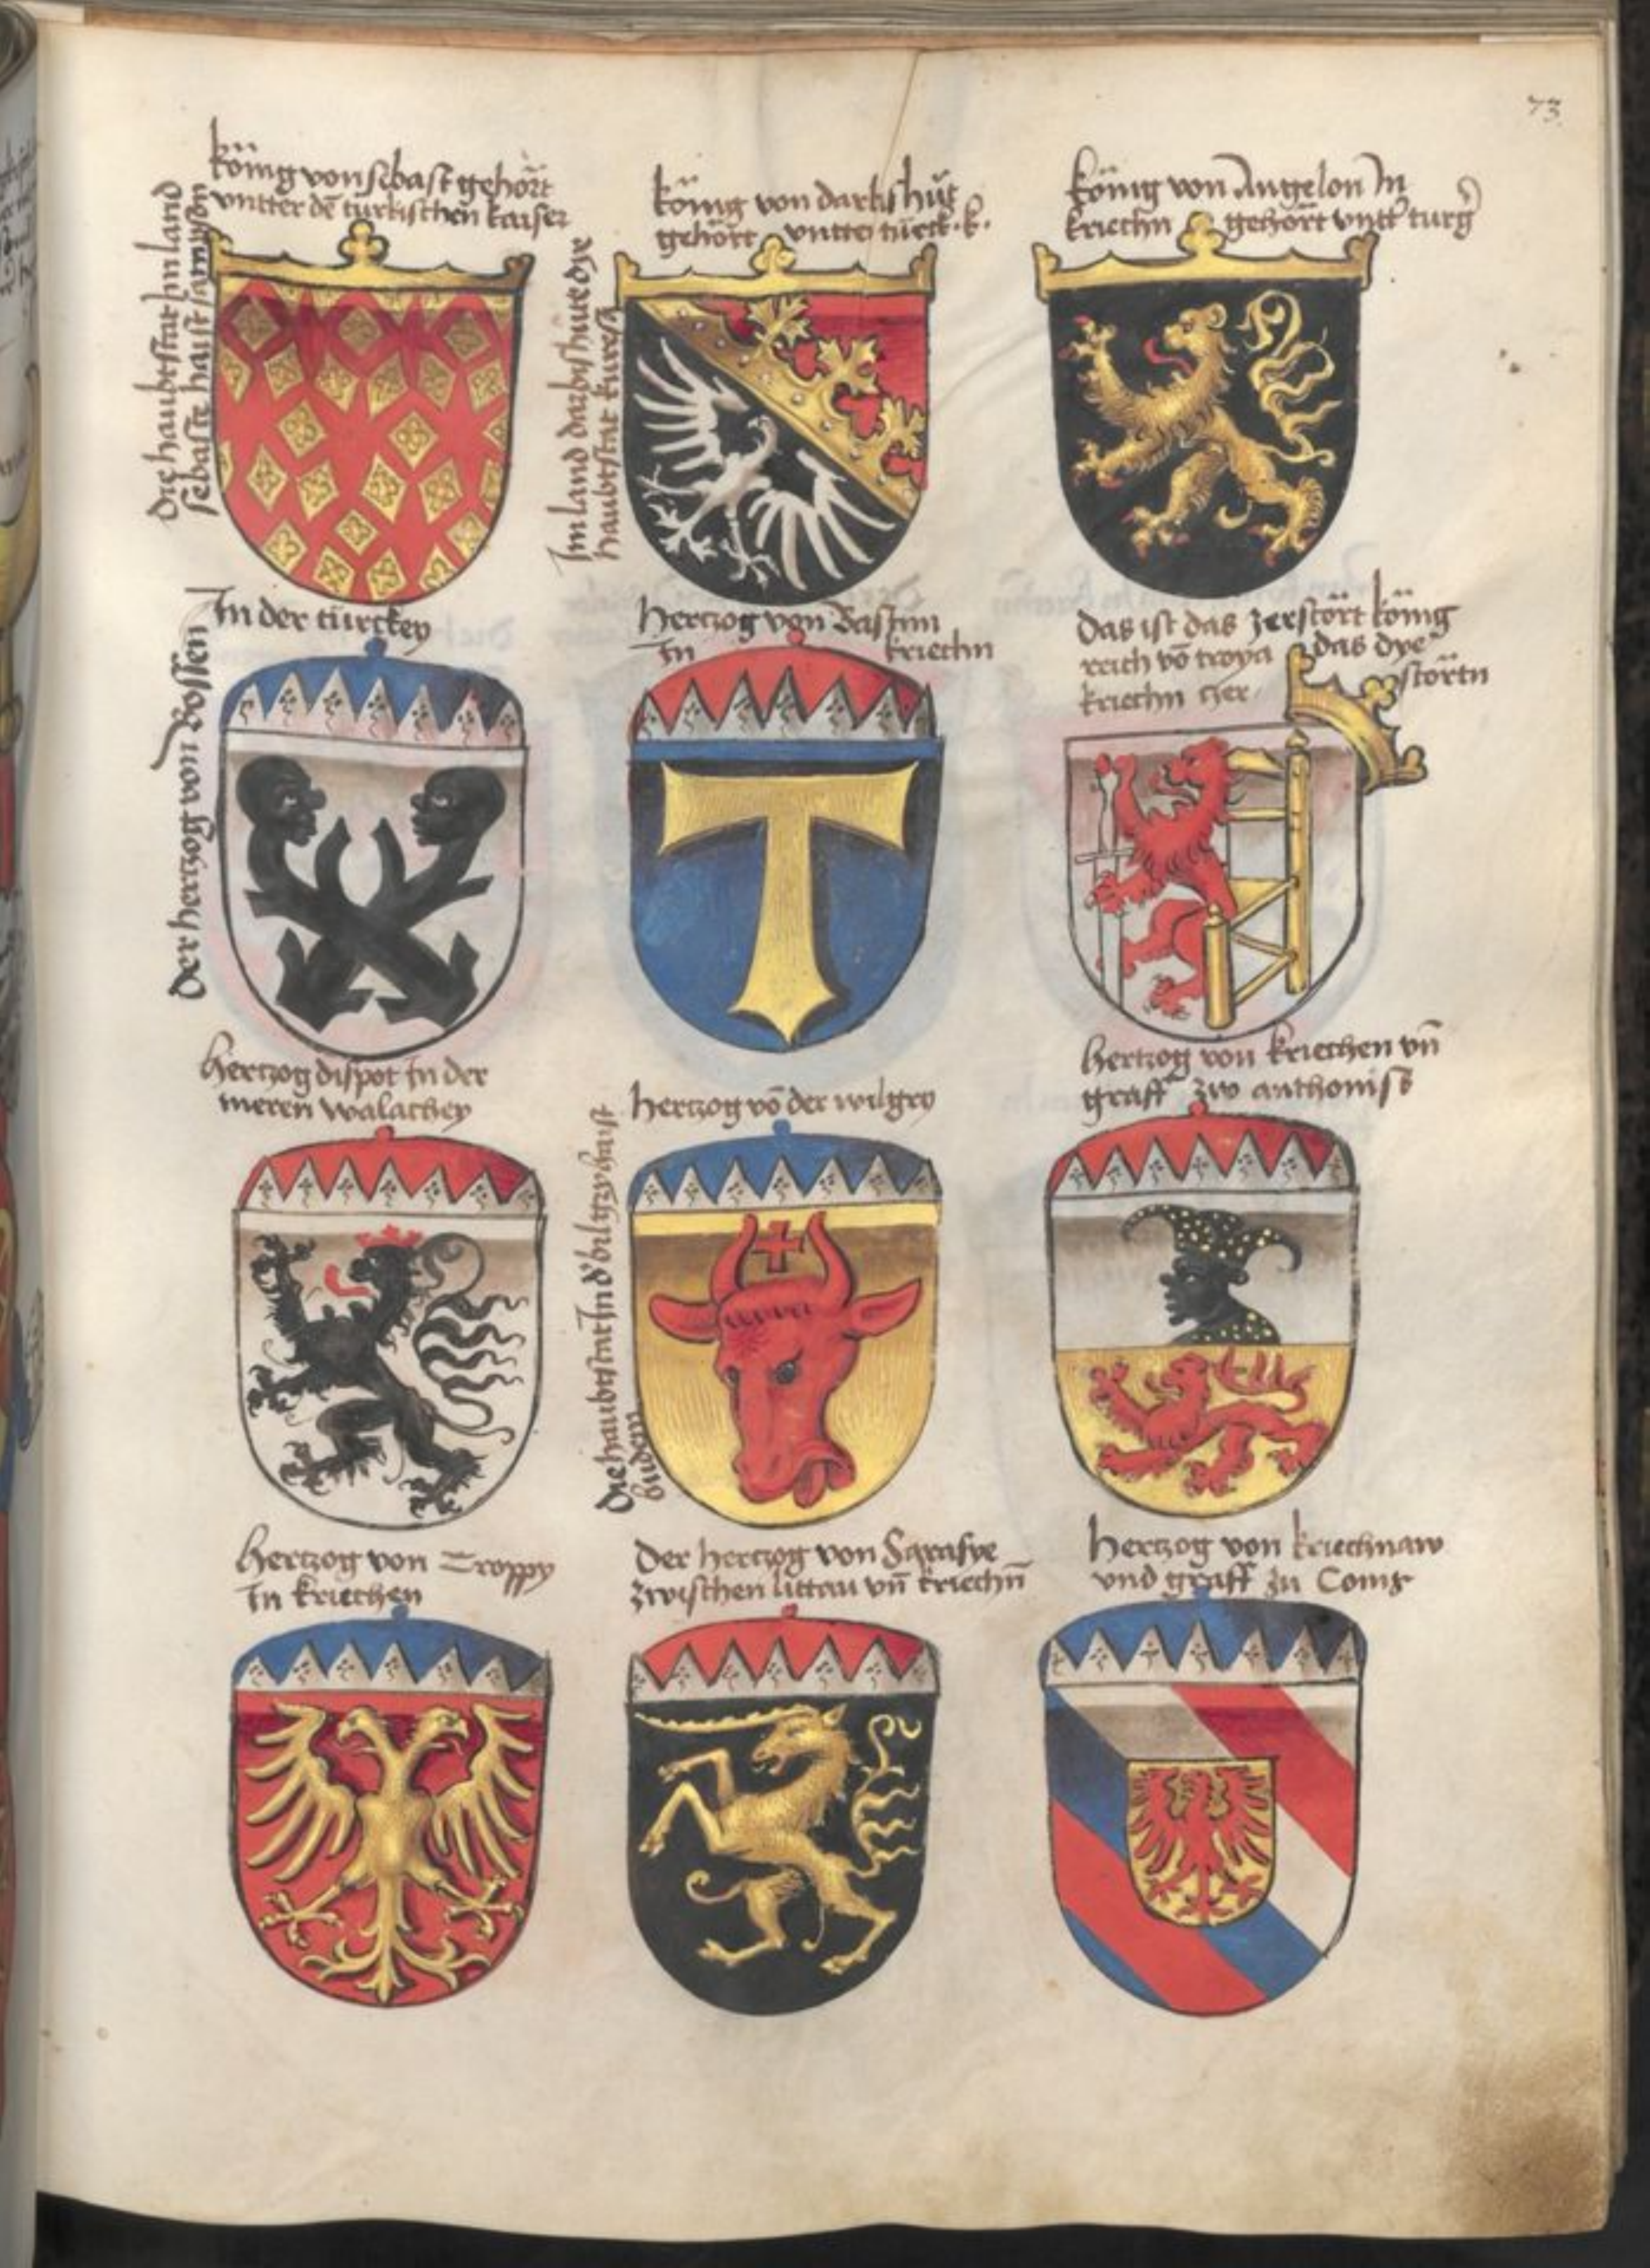 73
könig von sebast gehört
vntter dē türkischen kaiser
die haubtstat im land
sebaste haist sampson
könig von darbshüt
gehört vntter türck. k.
Im land darbishüte dye
haubtstat kuresa
könig von Angelon In
kriechn gehört vntt turg
In der türckey
der hertzog von Bossen
hertzog von Bastnn
In kriechn
das ist das zerstört könig
reich vō troya das dye
kriechn zer störtn
hertzog dispot In der
mern walachey
hertzog vō der wulgry
die haubtstat In d' bulgzy haist
budem
hertzog von kriechen vn̄
graff zw anthonist
hertzog von Troppy
In kriechen
der hertzog von Sarafye
zwischen littau vn̄ kriechn̄
hertzog von kriechnaw
vnd graff zu Coms